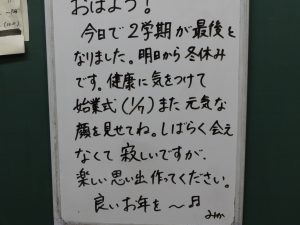 おはよう!
今日で2学期が最後と
なりました。明日から冬休み
です。健康に気をつけて
始業式(1/7)また元気な
顔を見せてね。しばらく会え
なくて寂しいですが、
楽しい思い出作ってください。
良いお年を〜♬
みか